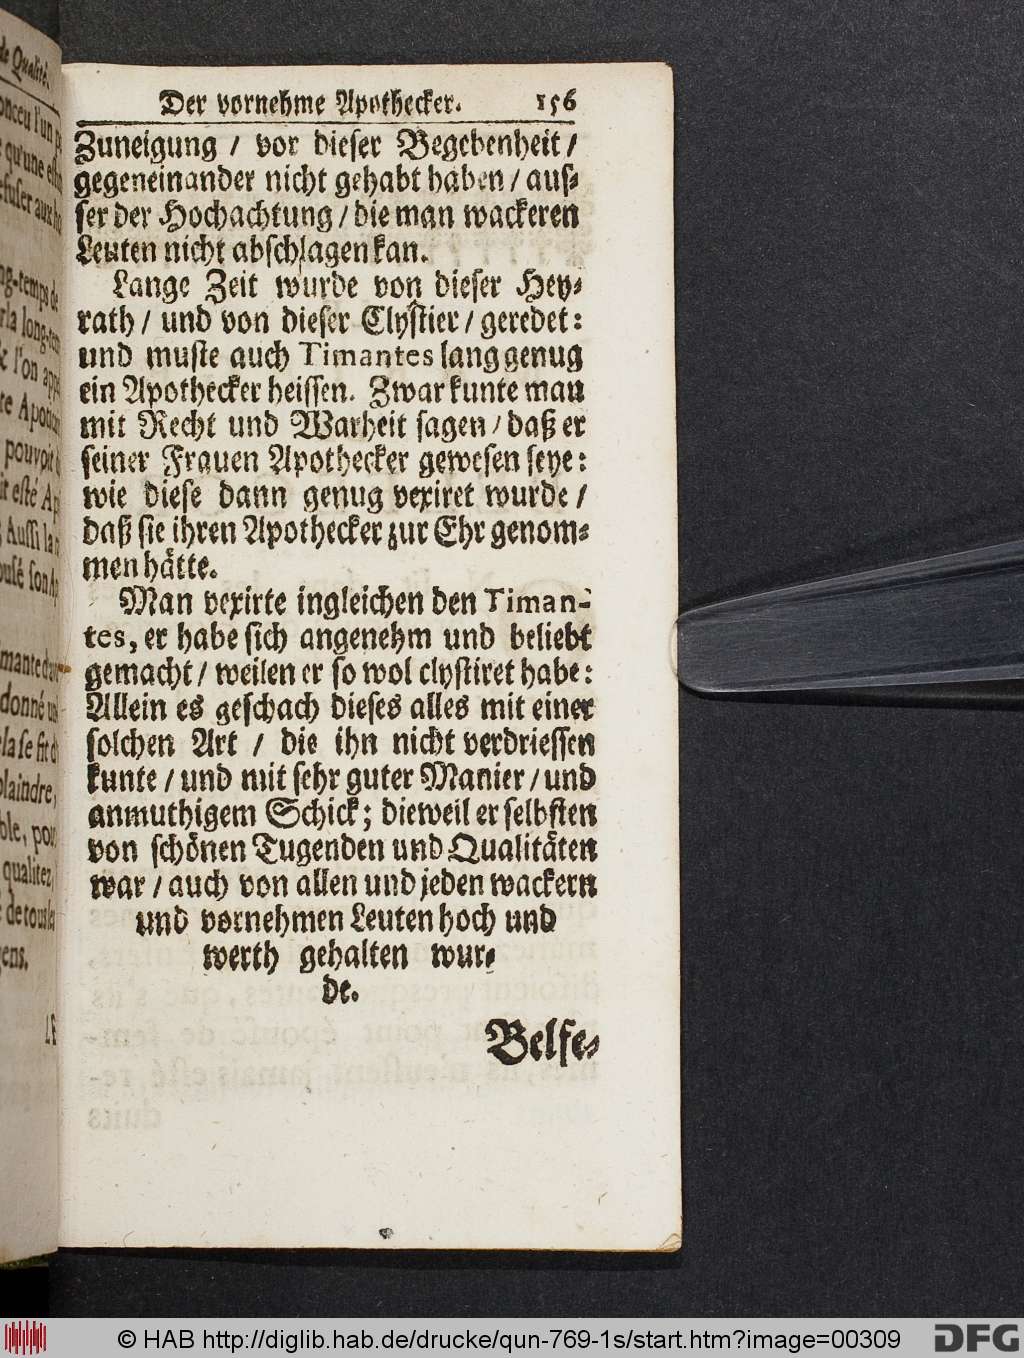 Der vornehme Apothecker. 156
Zuneigung / vor dieser Begebenheit /
gegeneinander nicht gehabt haben / aus⸗
ser der Hochachtung / die man wackeren
Leuten nicht abschlagen kan.
Lange Zeit wurde von dieser Hey⸗
rath / und von dieser Clystier / geredet:
und muste auch Timantes lang genug
ein Apothecker heissen. Zwar kunte man
mit Recht und Warheit sagen / daß er
seiner Frauen Apothecker gewesen seye:
wie diese dann genug vexiret wurde /
daß sie ihren Apothecker zur Ehr genom⸗
men hätte.
Man vexirte ingleichen den Timan-
tes, er habe sich angenehm und beliebt
gemacht / weilen er so wol clystiret habe:
Allein es geschach dieses alles mit einer
solchen Art / die ihn nicht verdriessen
kunte / und mit sehr guter Manier / und
anmuthigem Schick; dieweil er selbsten
von schönen Tugenden und Qualitäten
war / auch von allen und jeden wackern
und vornehmen Leuten hoch und
werth gehalten wur⸗
de.
Belfe⸗
de Qualité.
l'un
qu'une
-temps de
la long-
& l'on
pouvoit
esté
Aussi la
son
donné
la se fit
plaindre,
qualitez,
de tous les
© HAB http://diglib.hab.de/drucke/qun-769-1s/start.htm?image=00309
DFG